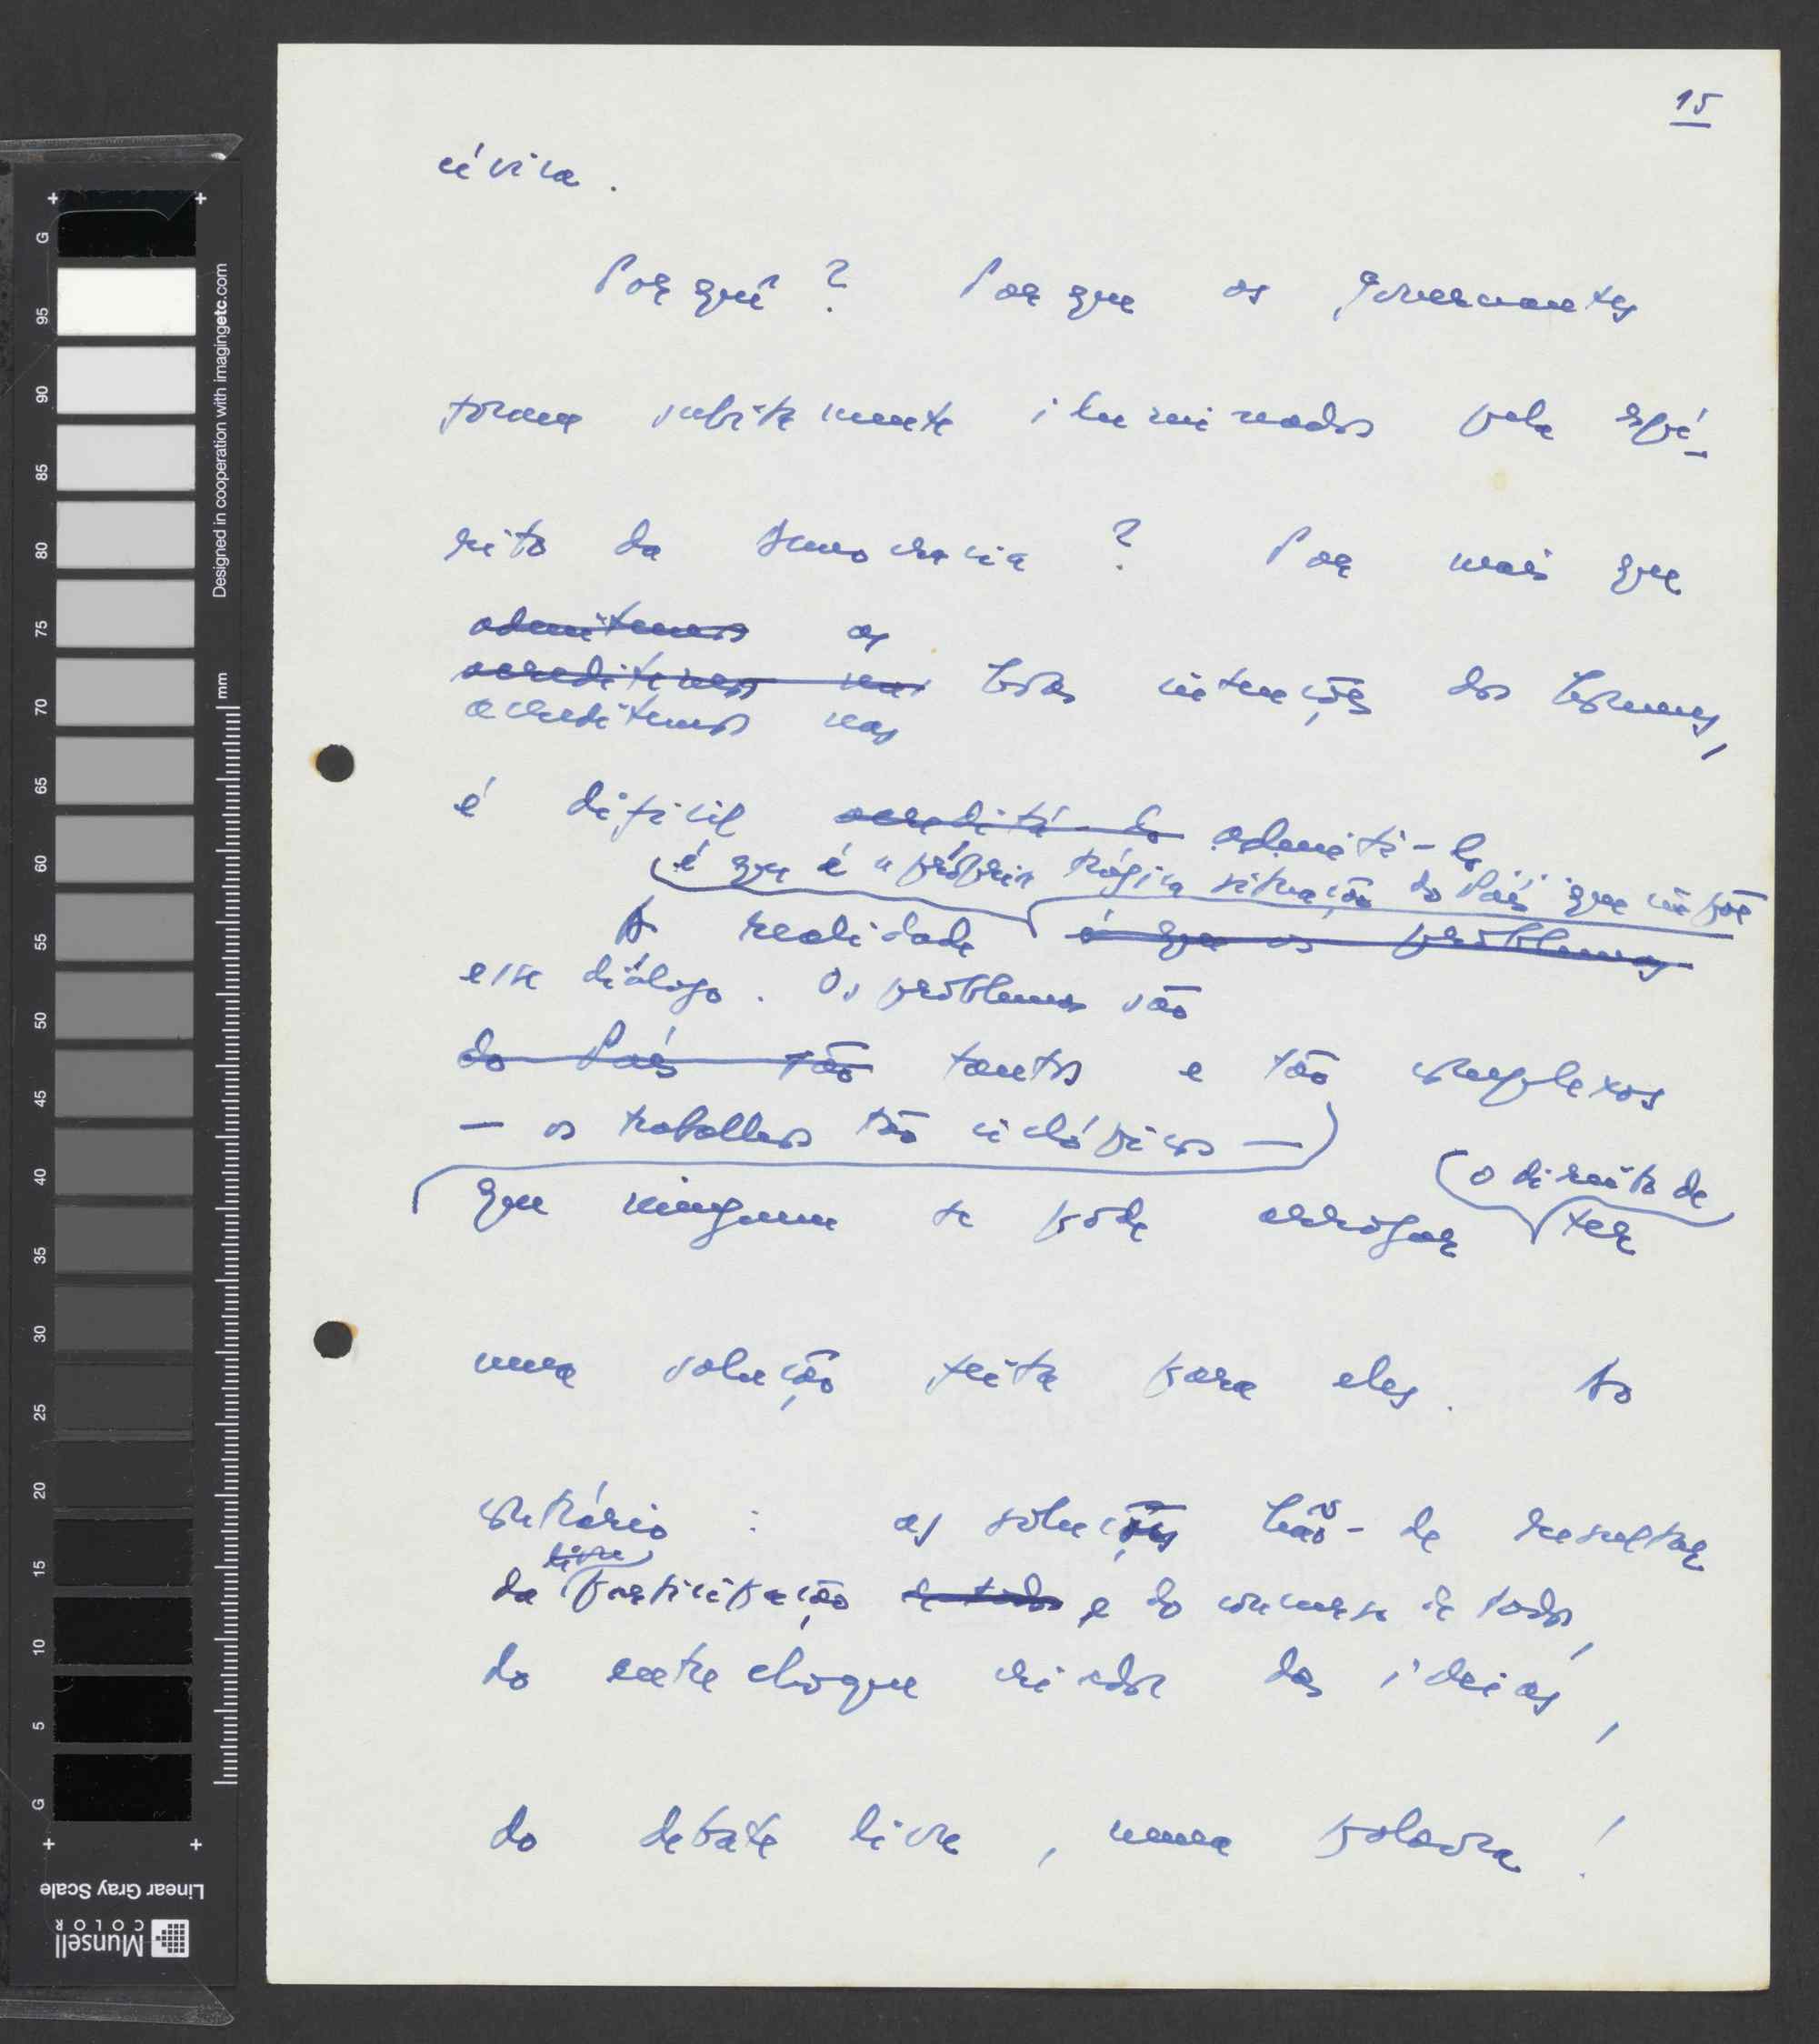 15
cívica.
Porquê? Porque os governantes
foram subitamente iluminados pelo espí-
rito da democracia? Por mais que
admitamos as
acreditemos nas boas intenções dos homens,
acreditemos nas
é difícil acreditá-lo admiti-lo
é que é a própria trágica situação do País que impõe
A realidade é que os problemas
esse diálogo. Os problemas são
do País são tantos e tão complexos
— os trabalhos tão ciclópicos —
o direito de
que ninguem se pode arrogar ter
uma solução feita para eles. Ao
contrário: as soluções hão-de resultar
livre
da participação de todos e do concurso de todos,
do entrechoque criador das ideias,
do debate livre, numa palavra!
G
95
90
85
80
75
70
65
60
55
50
45
40
35
30
25
20
15
10
5
G
Designed in cooperation with imagingetc.com
mm
Linear Gray Scale
Munsell
COLOR